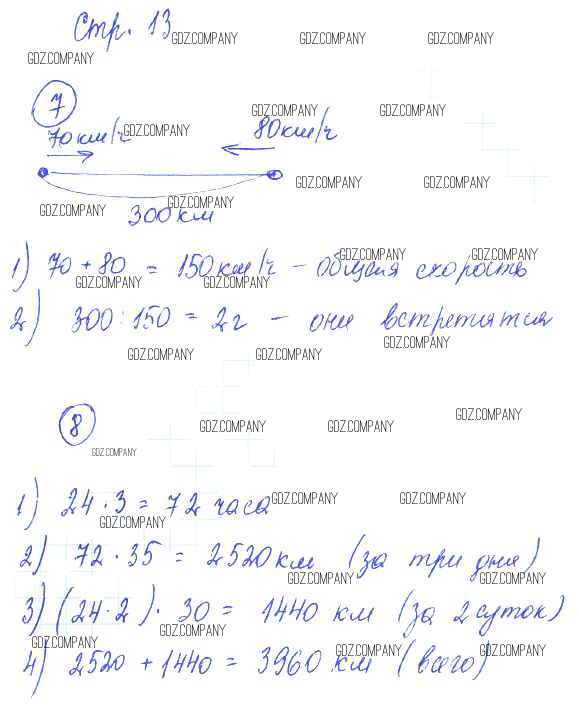 Стр. 13
GDZ.COMPANY GDZ.COMPANY GDZ.COMPANY
GDZ.COMPANY
7
GDZ.COMPANY GDZ.COMPANY
70км/ч GDZ.COMPANY 80км/ч
GDZ.COMPANY GDZ.COMPANY
GDZ.COMPANY GDZ.COMPANY
300км
1) 70 + 80 = 150км/ч - общая скорость
GDZ.COMPANY GDZ.COMPANY
GDZ.COMPANY GDZ.COMPANY
2) 300 : 150 = 2ч - они встретятся
GDZ.COMPANY
GDZ.COMPANY GDZ.COMPANY
8
GDZ.COMPANY
GDZ.COMPANY GDZ.COMPANY
GDZ.COMPANY
1) 24 · 3 = 72 часа GDZ.COMPANY GDZ.COMPANY
GDZ.COMPANY
2) 72 · 35 = 2520км (за три дня)
GDZ.COMPANY GDZ.COMPANY
3) (24 · 2) · 30 = 1440 км (за 2 суток)
GDZ.COMPANY
GDZ.COMPANY GDZ.COMPANY GDZ.COMPANY
4) 2520 + 1440 = 3960 км (всего)